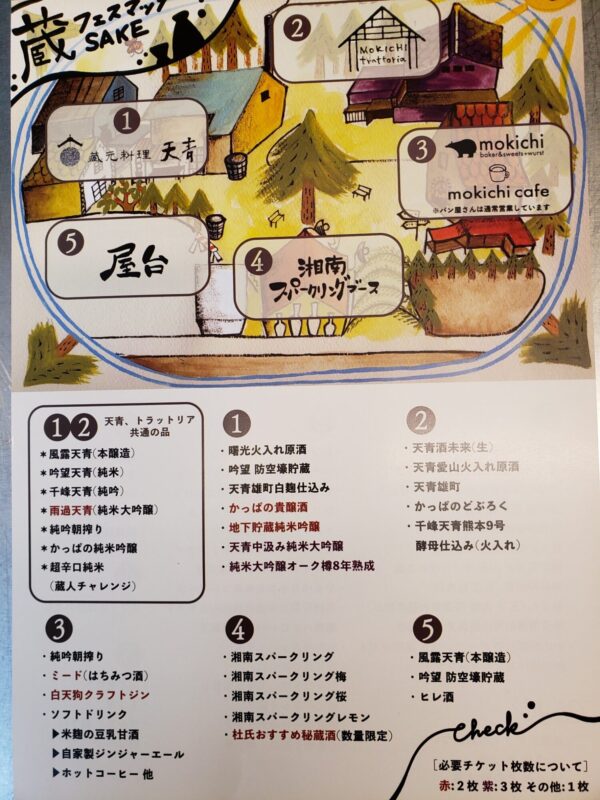 蔵フェスマップ
SAKE
❷
MOKICHI
trattoria
❶
蔵元料理 天青
❸
mokichi
baker&sweets+wurst
mokichi cafe
※パン屋さんは通常営業しています
❺
屋台
❹
湘南
スパークリングブース
❶❷ 天青、トラットリア
共通の品
＊風露天青(本醸造)
＊吟望天青(純米)
＊千峰天青(純吟)
＊雨過天青(純米大吟醸)
＊純吟朝搾り
＊かっぱの純米吟醸
＊超辛口純米
(蔵人チャレンジ)
❶
・曙光火入れ原酒
・吟望 防空壕貯蔵
・天青雄町白麹仕込み
・かっぱの貴醸酒
・地下貯蔵純米吟醸
・天青中汲み純米大吟醸
・純米大吟醸オーク樽8年熟成
❷
・天青酒未来(生)
・天青愛山火入れ原酒
・天青雄町
・かっぱのどぶろく
・千峰天青熊本9号
酵母仕込み(火入れ)
❸
・純吟朝搾り
・ミード(はちみつ酒)
・白天狗クラフトジン
・ソフトドリンク
▶米麹の豆乳甘酒
▶自家製ジンジャーエール
▶ホットコーヒー 他
❹
・湘南スパークリング
・湘南スパークリング梅
・湘南スパークリング桜
・湘南スパークリングレモン
・杜氏おすすめ秘蔵酒(数量限定)
❺
・風露天青(本醸造)
・吟望 防空壕貯蔵
・ヒレ酒
check
[必要チケット枚数について]
赤:2枚 紫:3枚 その他:1枚